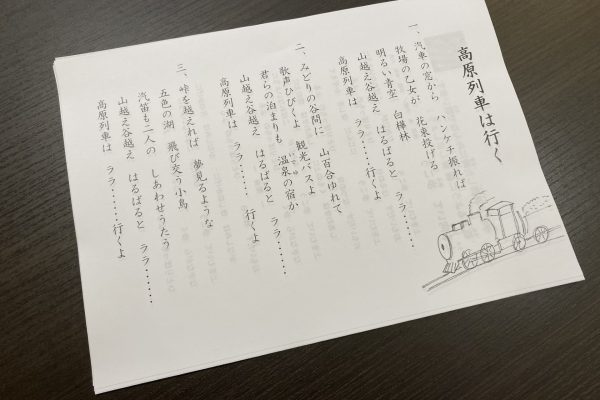 高原列車は行く
一、汽車の窓から　ハンケチ振れば
牧場の乙女が　花束投げる
明るい青空　白樺林
山越え谷越え　はるばると　ララ・・・・・・
高原列車は　ララ・・・・・・行くよ
二、みどりの谷間に　山百合ゆれて
歌声ひびくよ　観光バスよ
君らの泊まりも　温泉の宿か
山越え谷越え　はるばると　ララ・・・・・・
高原列車は　ララ・・・・・・行くよ
三、峠を越えれば　夢見るような
五色の湖　飛び交う小鳥
汽笛も二人の　しあわせうたう
山越え谷越え　はるばると　ララ・・・・・・
高原列車は　ララ・・・・・・行くよ